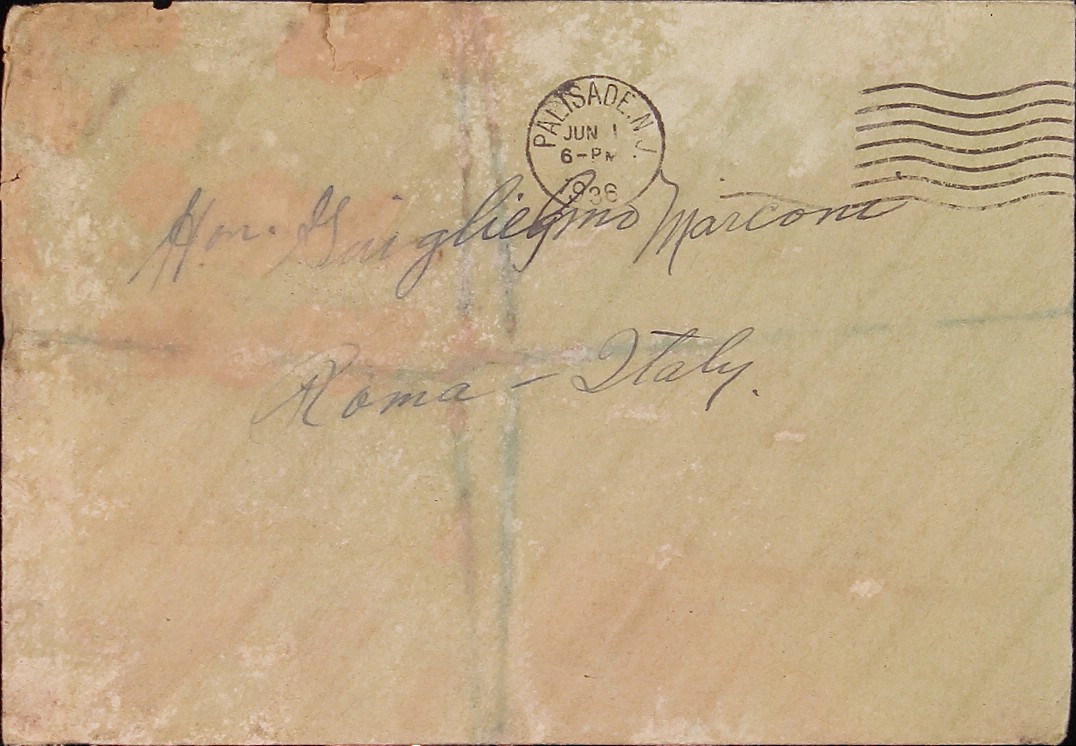 PALISADE. N J
JUN 1
6-PM
1936
Hon. Guiglielmo Marconi
Roma - Italy.